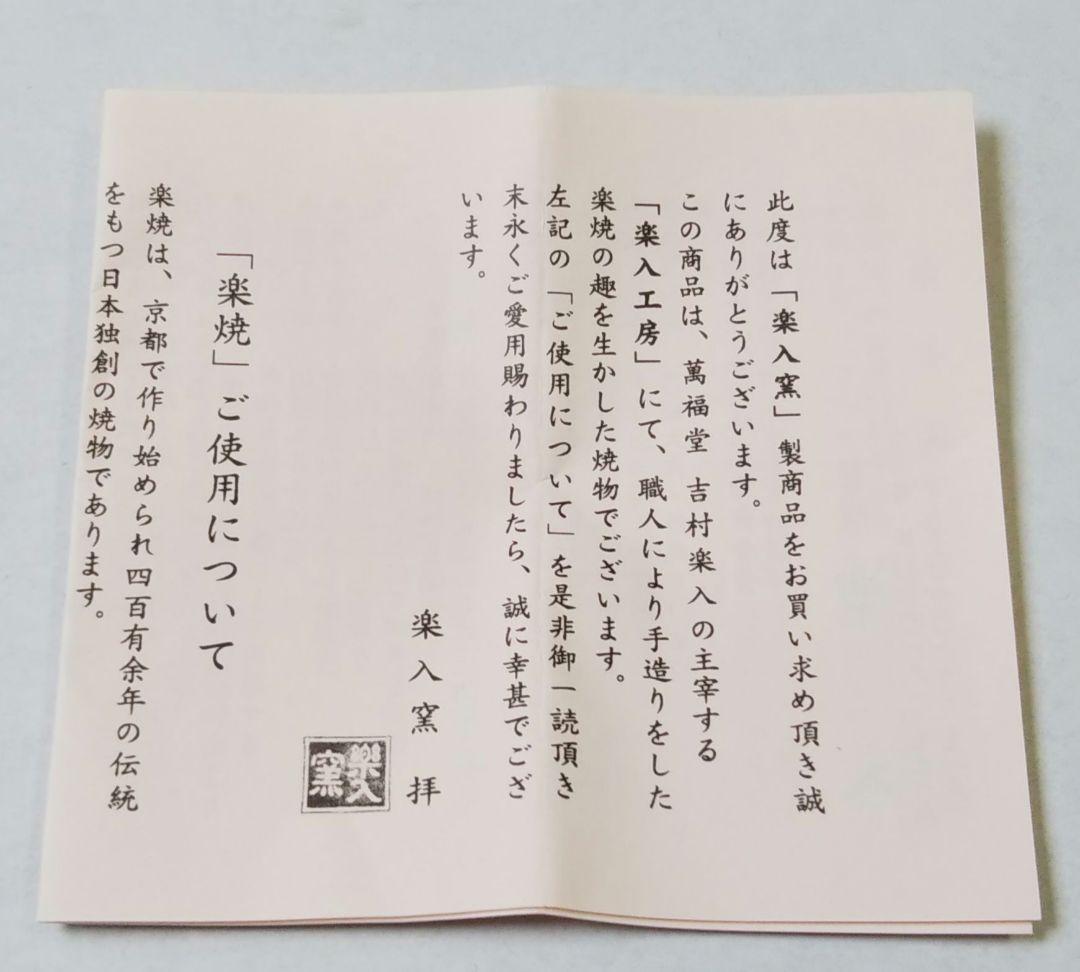 此度は「楽入窯」製商品をお買い求め頂き誠
にありがとうございます。
この商品は、萬福堂 吉村楽入の主宰する
「楽入工房」にて、職人により手造りをした
楽焼の趣を生かした焼物でございます。
左記の「ご使用について」を是非御一読頂き
末永くご愛用賜わりましたら、誠に幸甚でござ
います。
楽入窯 拝
樂入窯
「楽焼」ご使用について
楽焼は、京都で作り始められ四百有余年の伝統
をもつ日本独創の焼物であります。